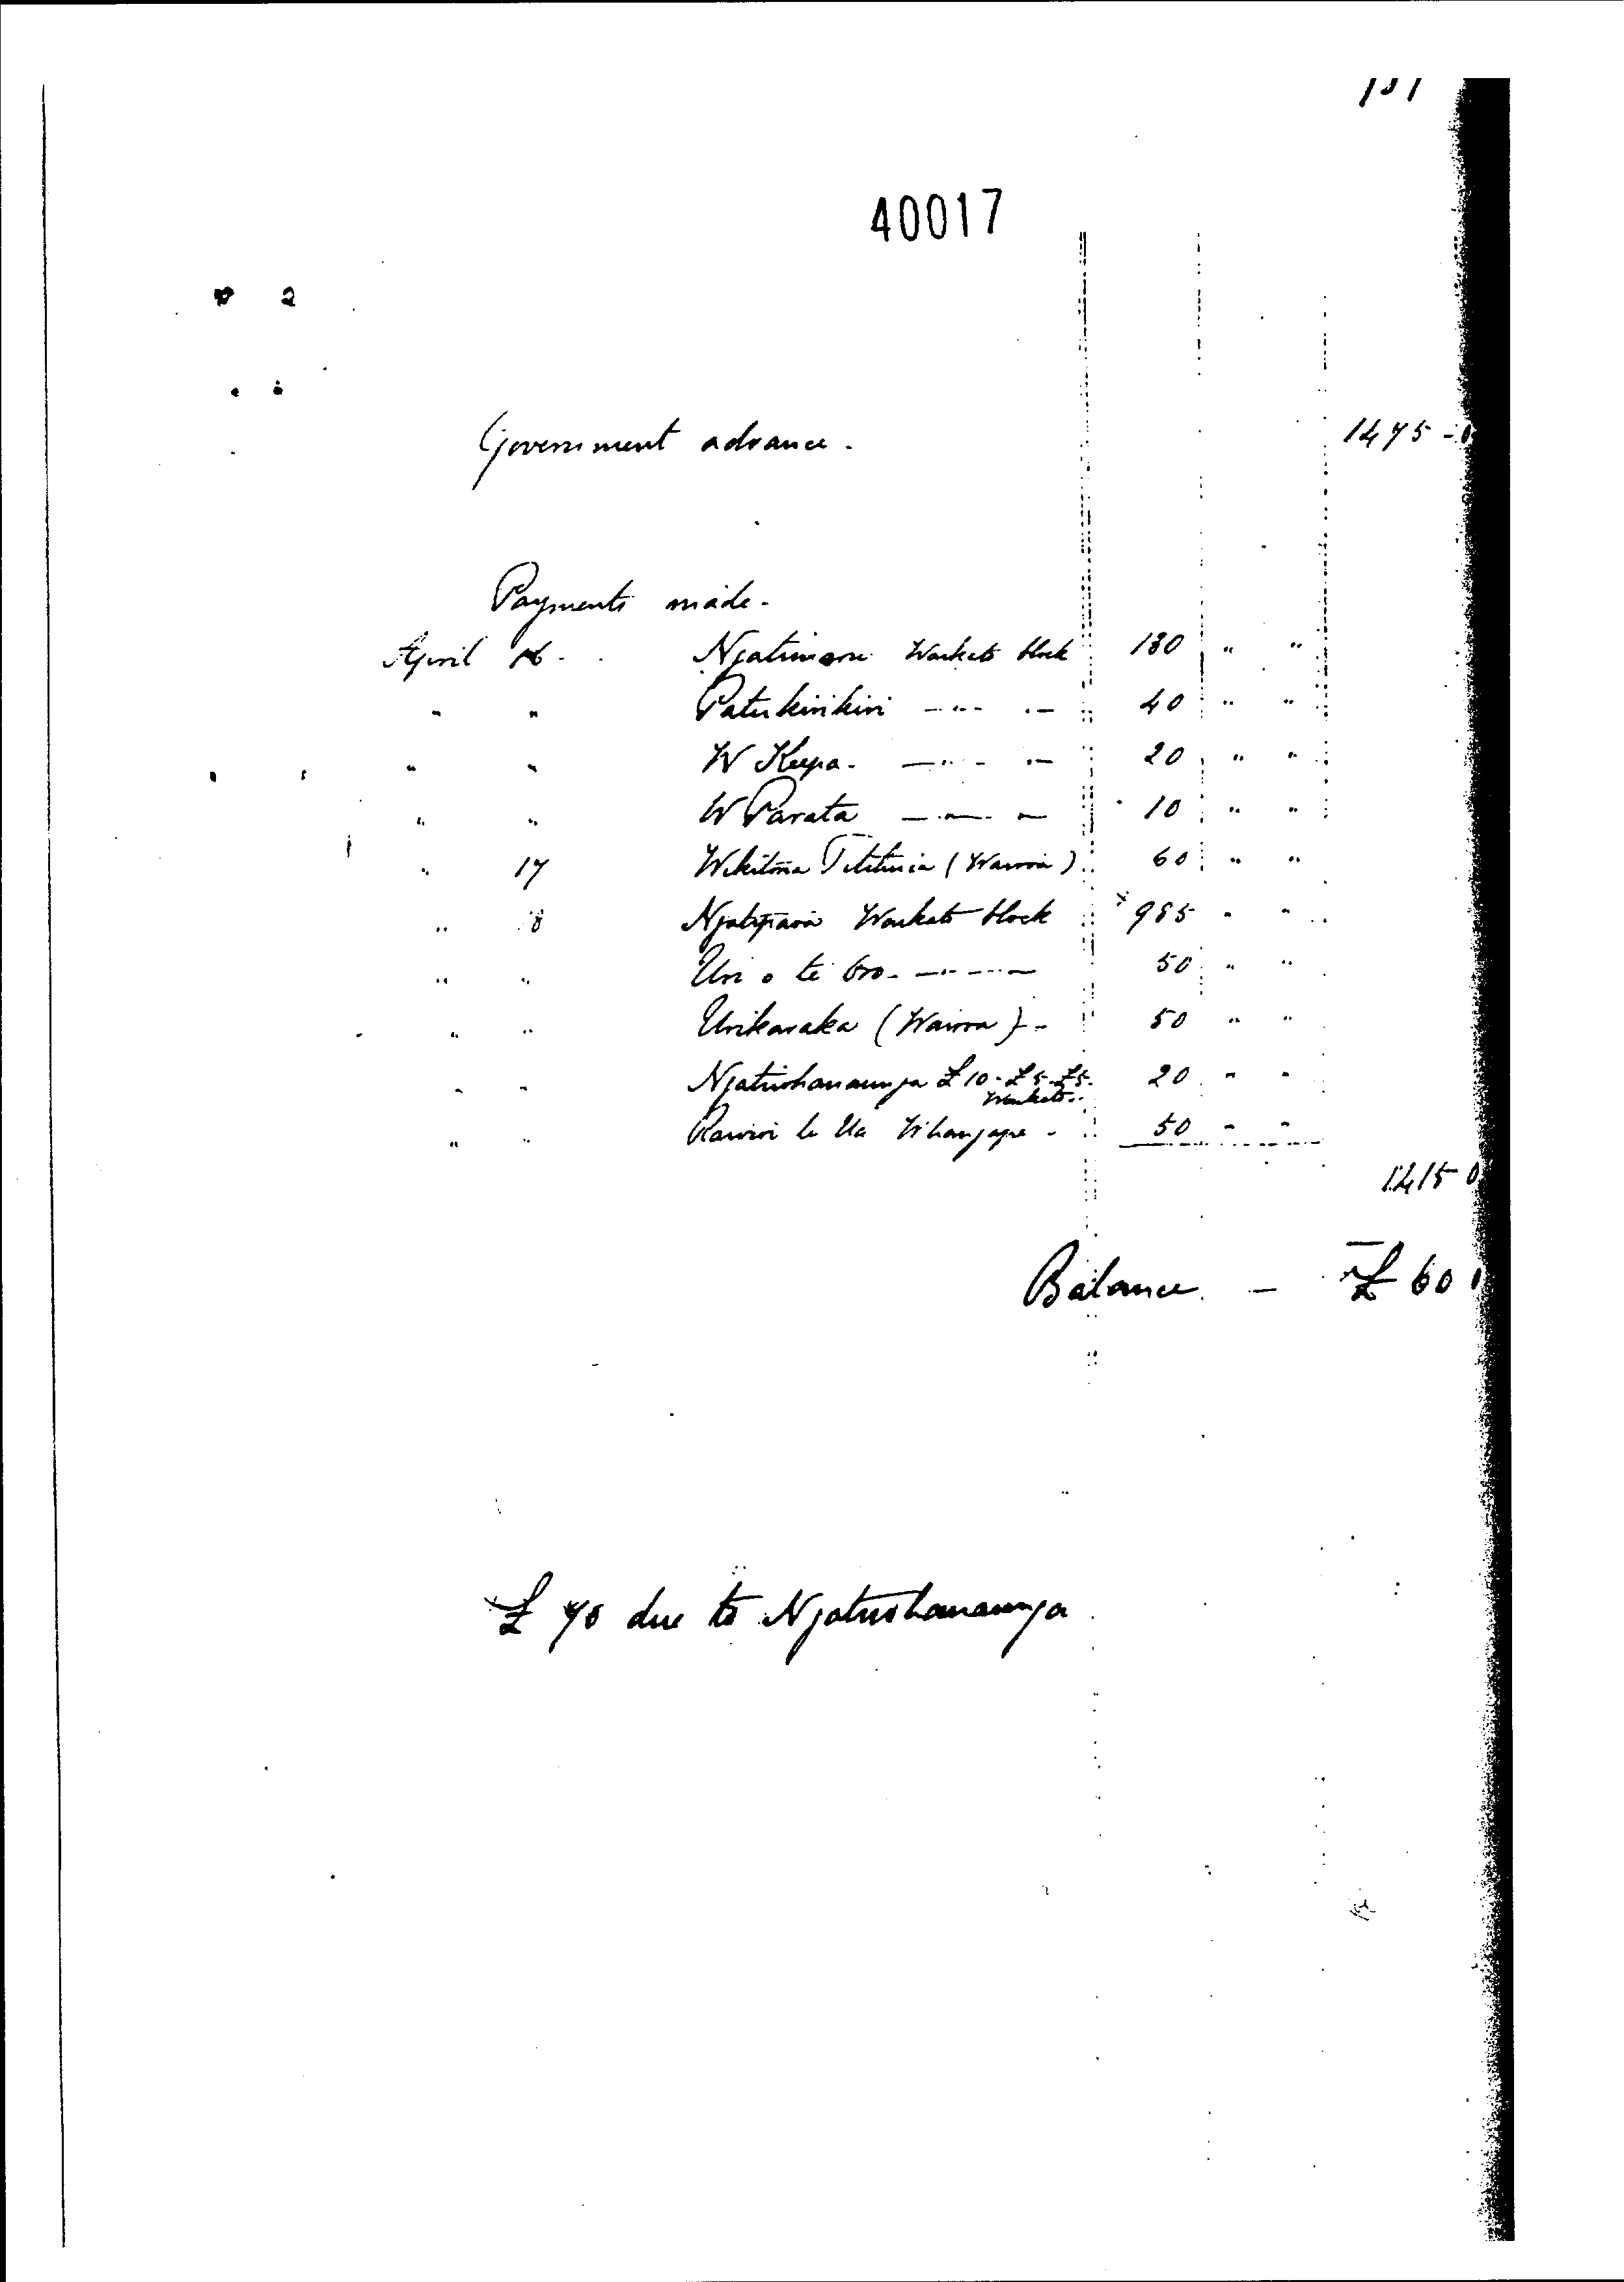 40017
Government advance. 1475-0
Payments made.
April 16. Ngatimaru Waikato block 130 " "
" " Patukirikiri —"— 40 " "
" " W Keepa. —"— 20 " "
" " W Parata —"— 10 " "
" 17 Wikitoria (Wairoa) 60 " "
" 18 Ngatipaoa Waikato block × 985 " "
" " Uri o te —"— 50 " "
" " Urikaraka (Wairoa) - 50 " "
" " Ngatiwhanaunga £10-£5-£5. 20 " "
Waikato.
" " Rawiri te Ua - 50 " "
1415 0
Balance. - £60
£70 due to Ngatiwhanaunga